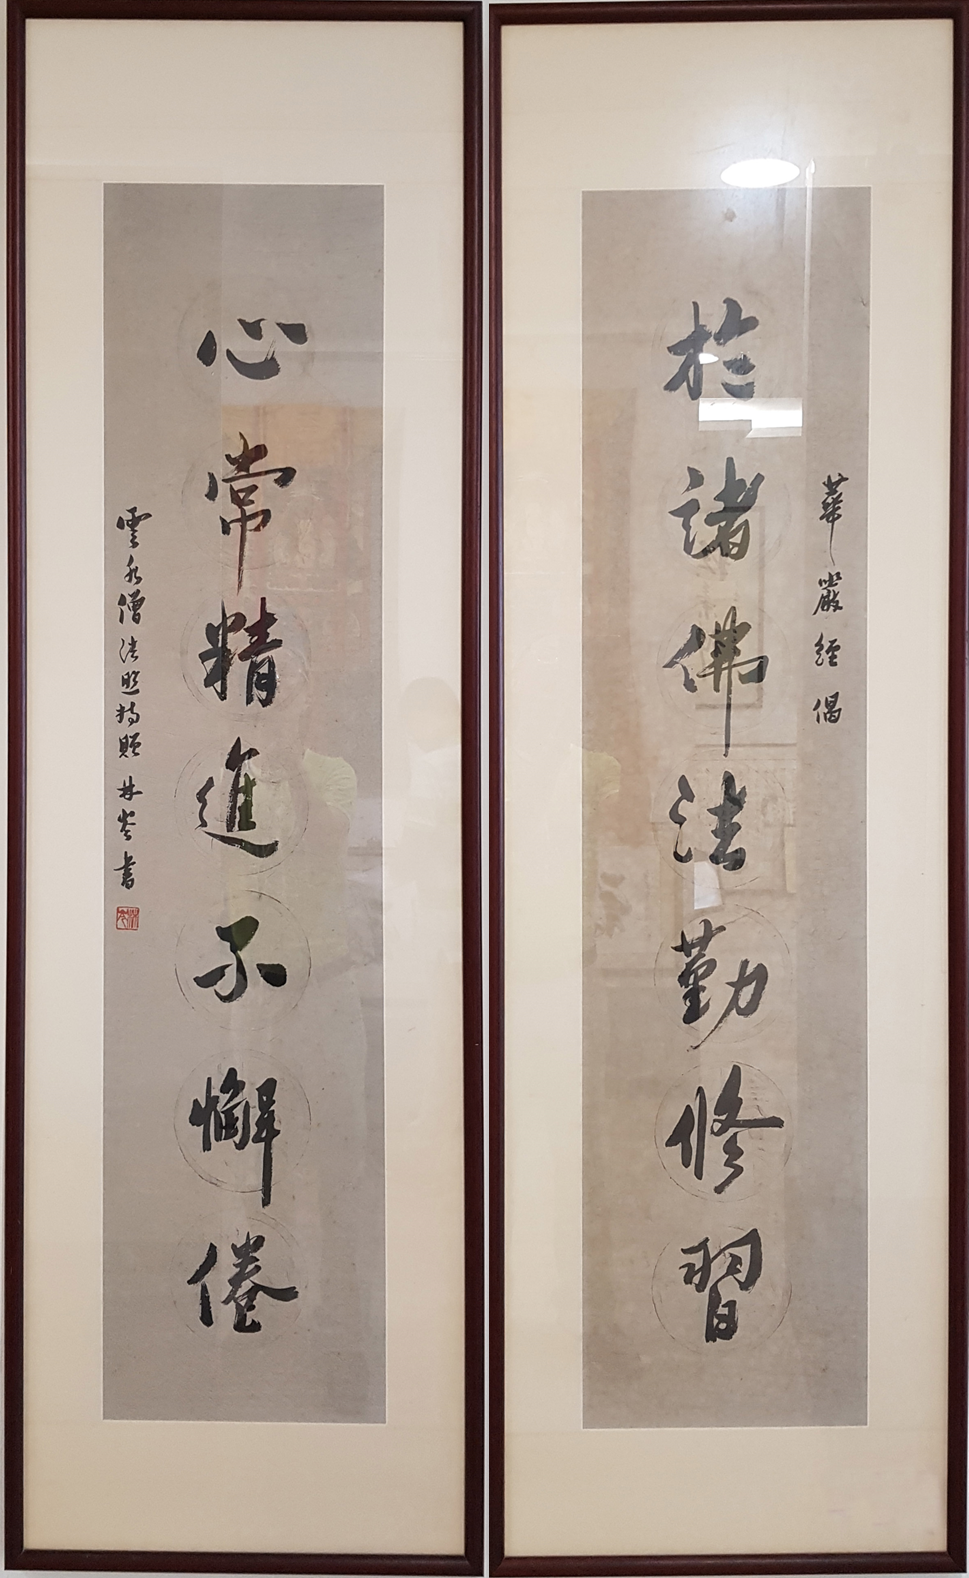 華嚴經偈
於諸佛法勤修習
心常精進不懈倦
雲水僧法照持贈 林岑書